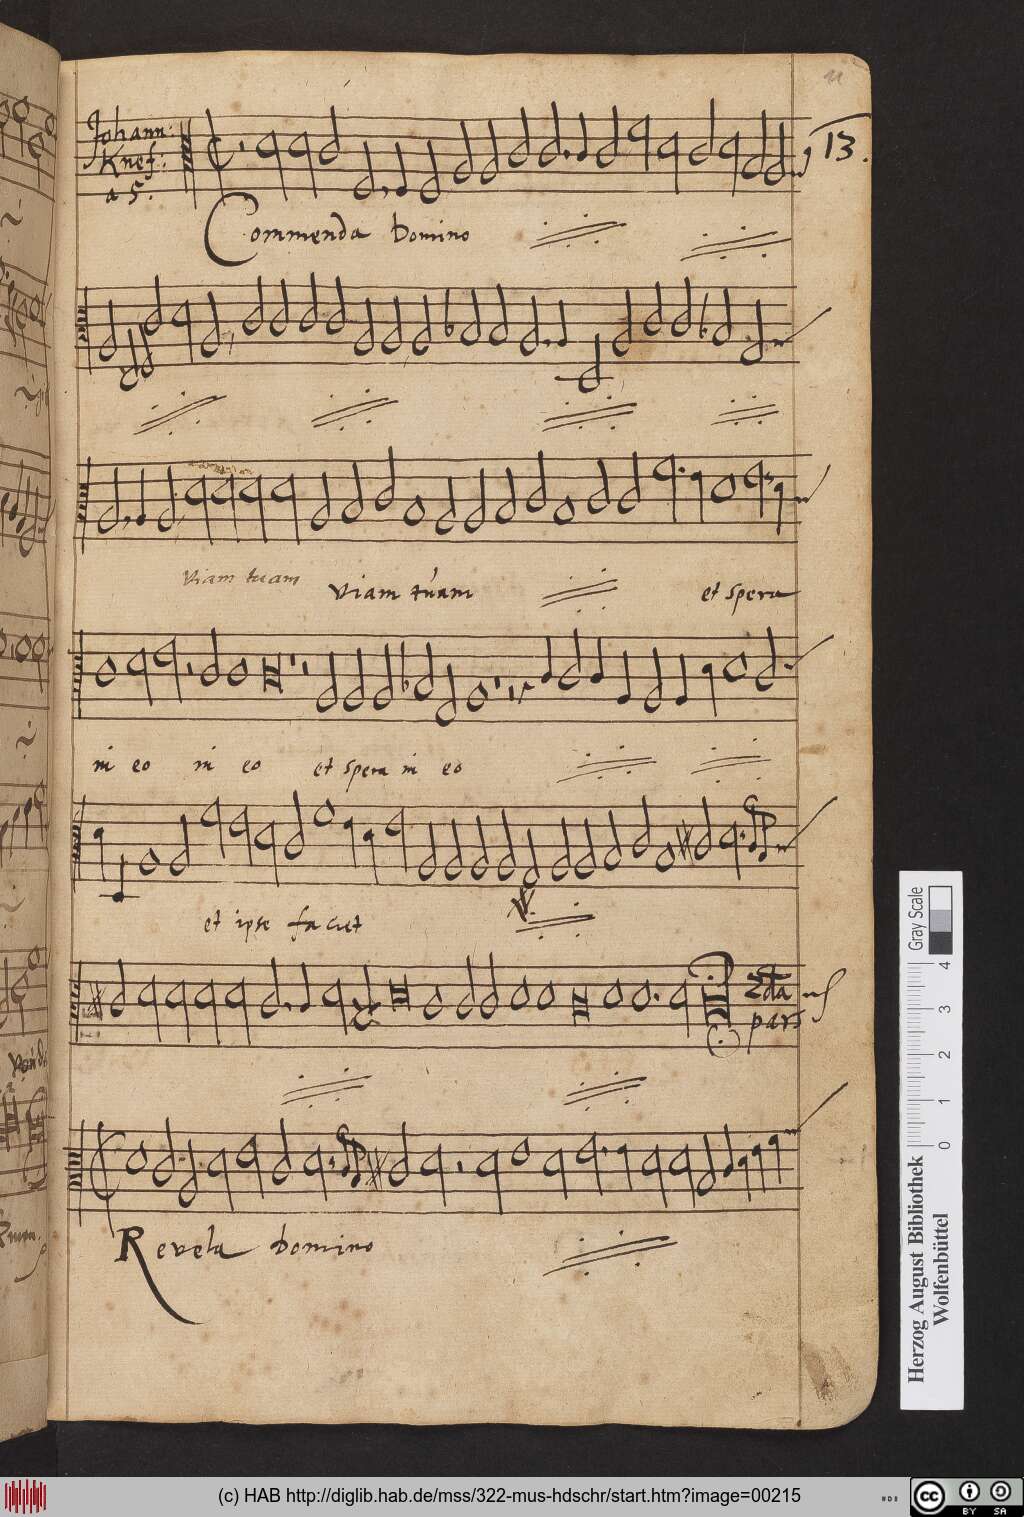 11
Johann:
Knef:
a 5.
13.
Commenda Domino
viam tuam
viam tuam et spera
in eo in eo et spera in eo
et ipse faciet
2da
pars
Revela Domino
Gray Scale
4
3
2
1
0
Herzog August Bibliothek
Wolfenbüttel
(c) HAB http://diglib.hab.de/mss/322-mus-hdschr/start.htm?image=00215
cc
BY SA